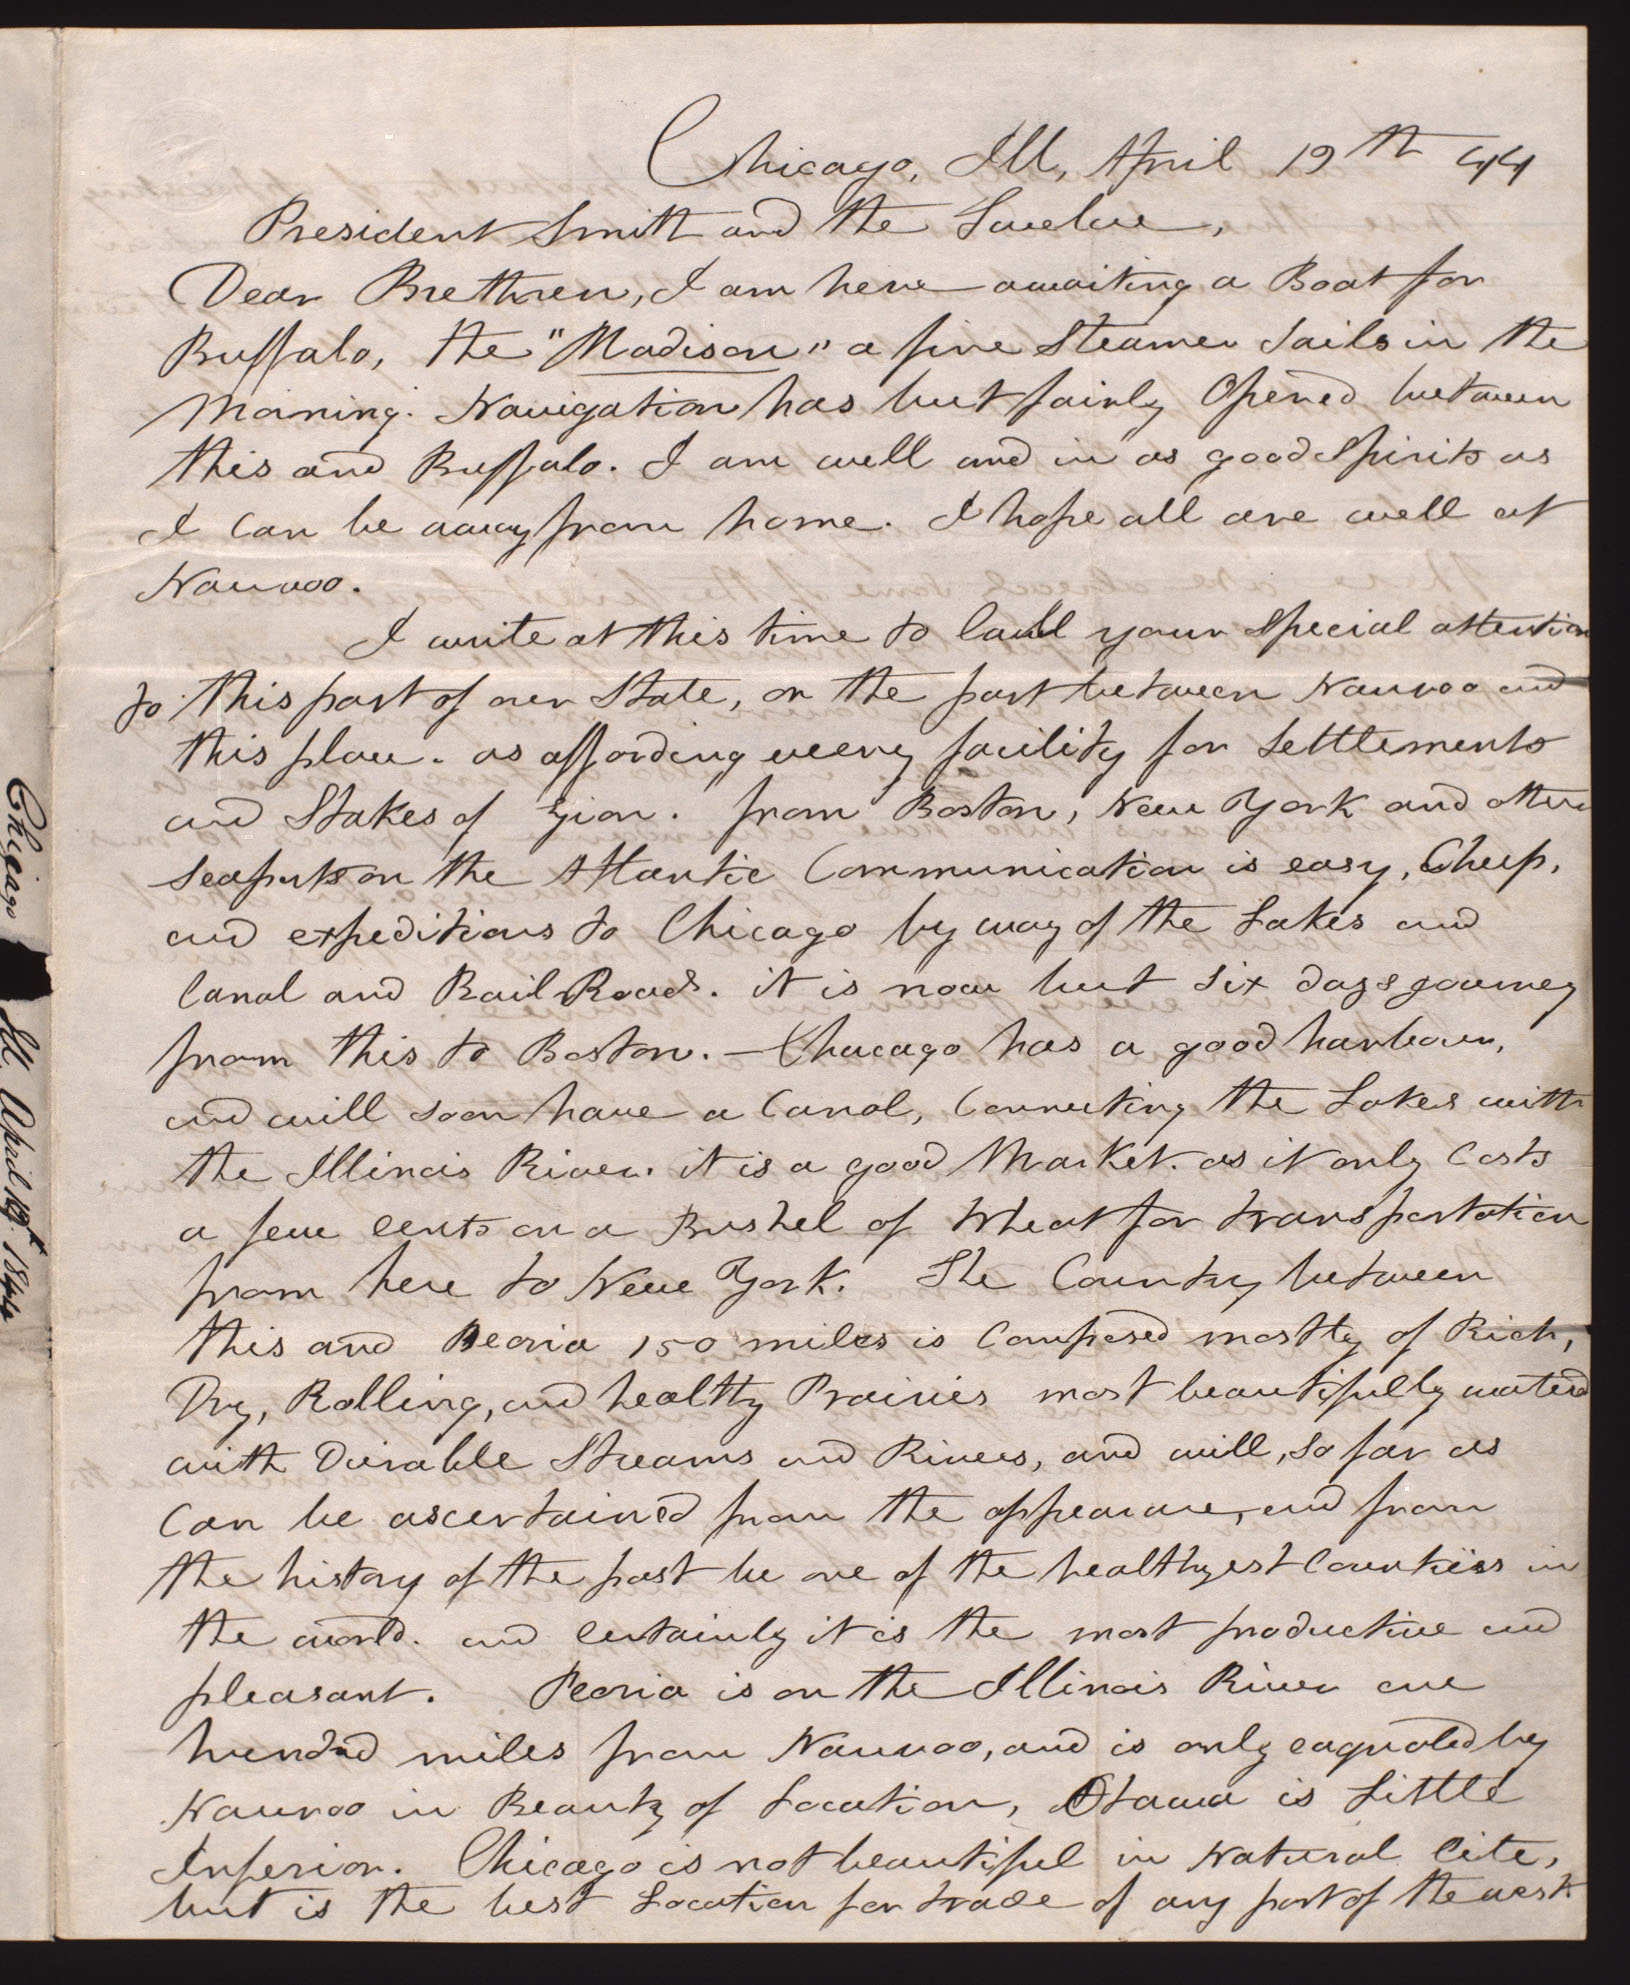 Chicago, Ill, April 19th 44
President Smith and the Twelve,
Dear Brethren, I am here awaiting a Boat for
Buffalo, the "Madison" a fine Steamer Sails in the
Morning. Navigation has but fairly Opened between
this and Buffalo. I am well and in as good Spirits as
I can be away from home. I hope all are well at
Nauvoo.
I write at this time to call your Special attention
to this part of our State, or the part between Nauvoo and
this place. as affording every facility for Settlements
and Stakes of Zion. from Boston, New York and other
Seaports on the Atlantic Communication is easy, Cheep,
and expeditious to Chicago by way of the Lakes and
Canal and Rail Roads. it is now but Six days journey
from this to Boston. — Chacago has a good harbour,
and will soon have a Canal, Connecting the Lakes with
the Illinois River. it is a good Market. as it only Costs
a few cents on a Bushel of Wheat for transportation
from here to New York. The Country between
this and Peoria 150 miles is Composed mostly of Rich,
Dry, Rolling, and healthy Prairies most beautifully watered
with Durable Streams and Rivers, and will, So far as
Can be ascertained from the appearance, and from
the history of the past be one of the healthyest Countries in
the world. and certainly it is the most productive and
pleasant. Peoria is on the Illinois River one
hundred miles from Nauvoo, and is only eaqualed by
Nauvoo in Beauty of Location, Otawa is Little
Inferior. Chicago is not beautiful in Natural Cite,
but is the best Location for trade of any part of the west
Chicago Ill. April 19th. 1844